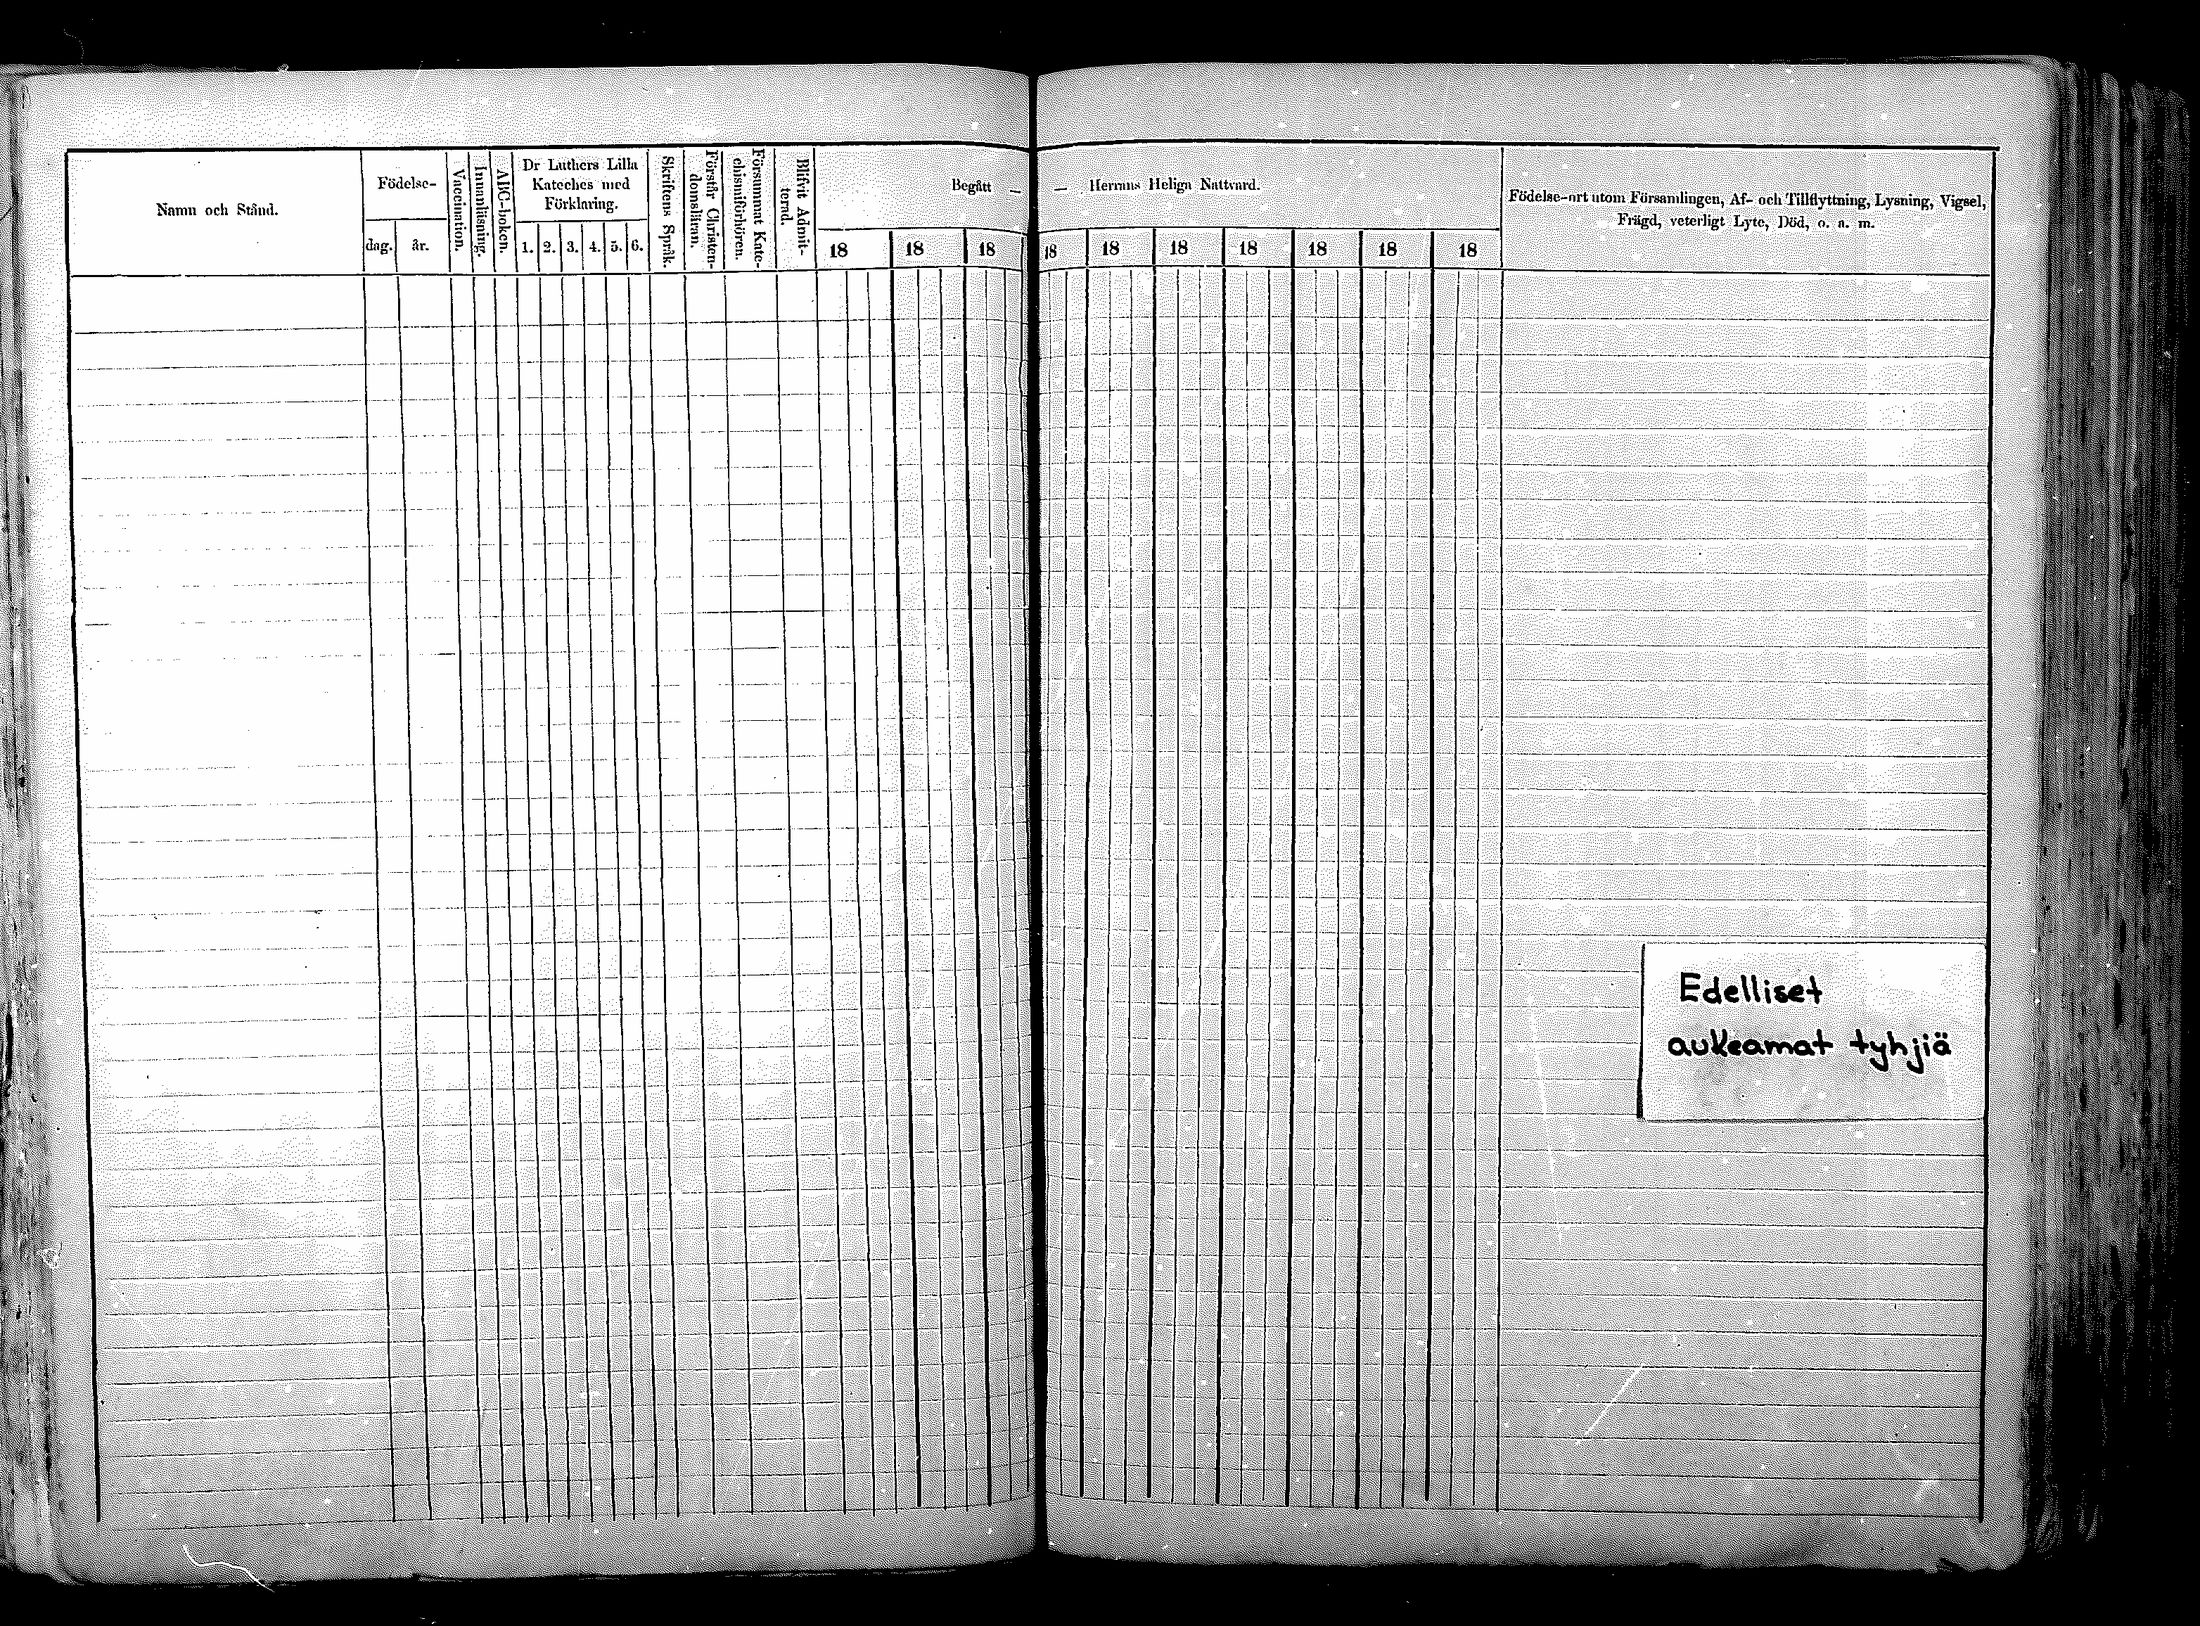 Namn och Stånd.
Födelse-
dag.
år.
Vaccination.
Innanläsning.
ABC-boken.
Dr Luthers Lilla
Kateches med
Förklaring.
1. 2. 3. 4. 5. 6.
Skriftens Språk.
Förstår Christen-
domsläran.
Försummat Kate-
chismiförhören.
Blifvit Admit-
terad.
Begått —
— Herrans Heliga Nattvard.
18 18 18 18 18 18 18 18 18 18
Födelse-ort utom Församlingen, Af- och Tillflyttning, Lysning, Vigsel,
Frägd, veterligt Lyte, Död, o. a. m.
Edelliset
aukeamat tyhjiä